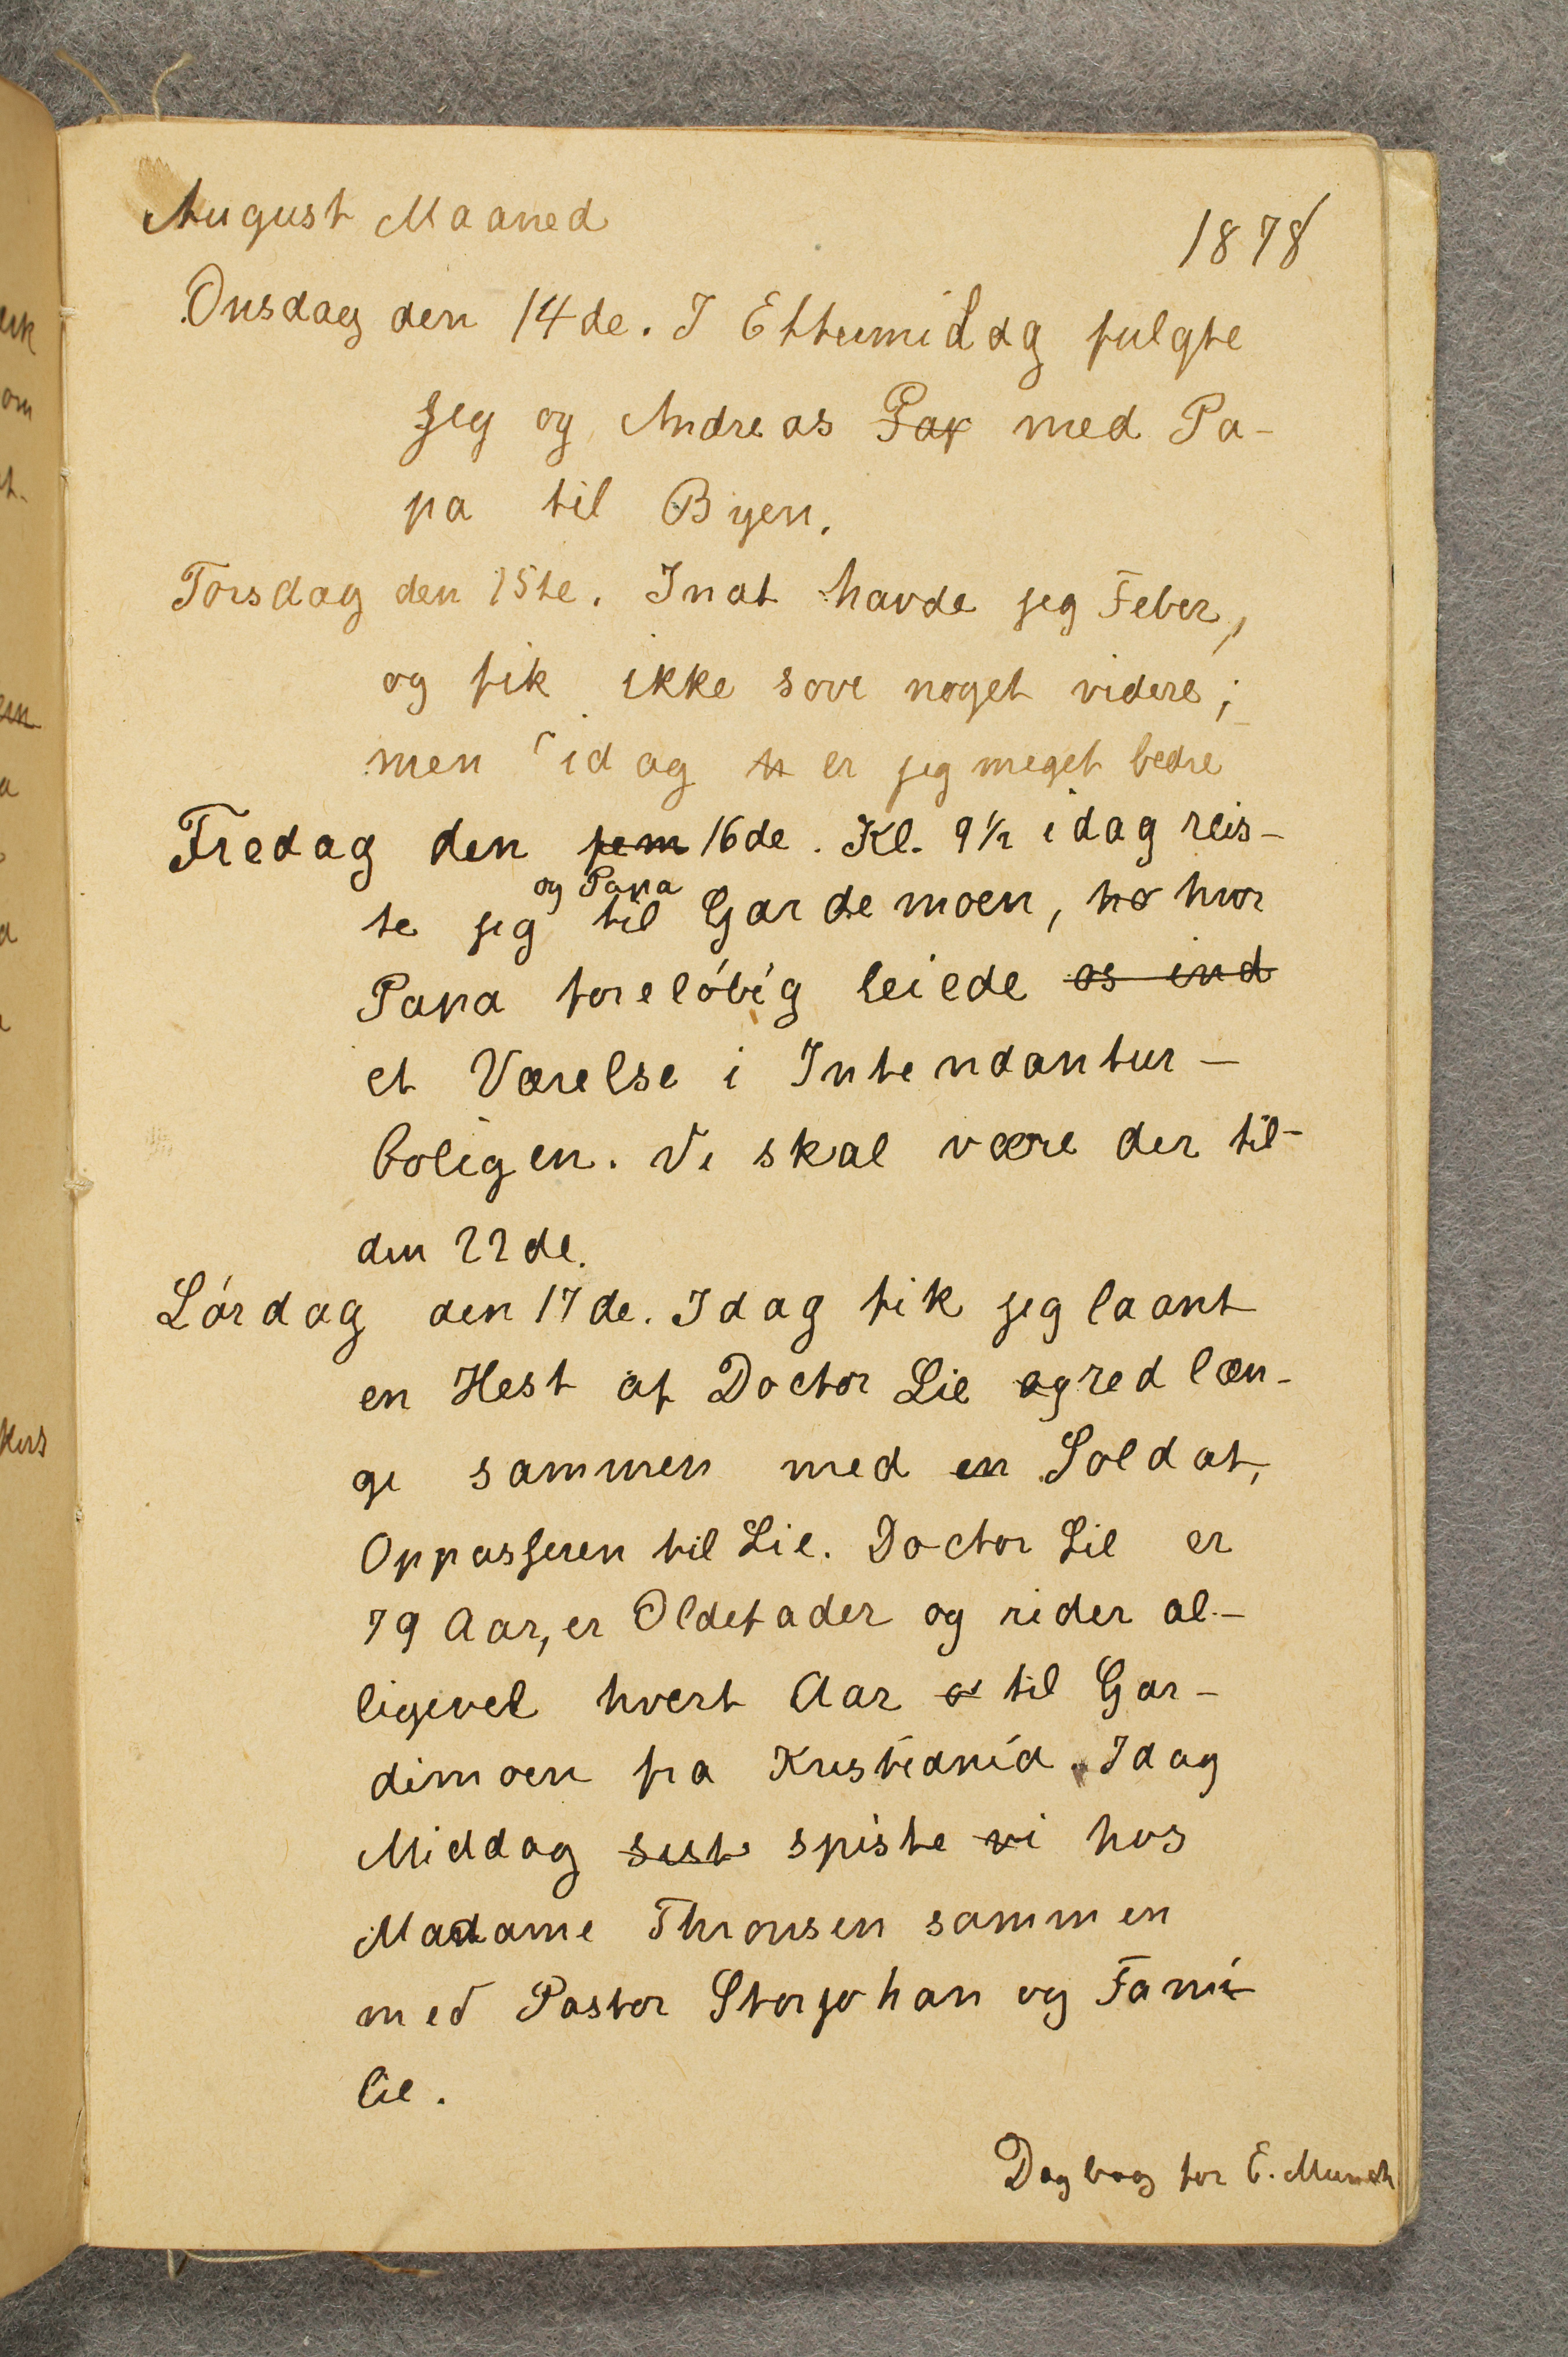 August Maaned
1878
Onsdag den 14de. I Eftermiddag fulgte
jeg og Andreas Pap med Pa-
pa til Byen.
Torsdag den 15te. Inat havde jeg Feber,
og fik ikke sove noget videre;
men idag h er jeg meget bedre
Fredag den fem 16de. Kl. 9½ idag reis-
og Papa
te jeg til Gardemoen, ho hvor
Papa foreløbig leiede os ind
et Værelse i Intendantur-
boligen. Vi skal være der til
den 22de.
Lørdag den 17de. Idag fik jeg laant
en Hest af Doctor Lie og red læn-
ge sammen med en Soldat,
Oppasseren til Lie. Doctor Lie er
79 Aar, er Oldefader og rider al-
ligevel hvert Aar a til Gar-
dimoen fra Kristiania. Idag
Middag sist spiste vi hos
Madame Thronsen sammen
med Pastor Storjohan og Fami
lie.
Dagbog for E. Munch